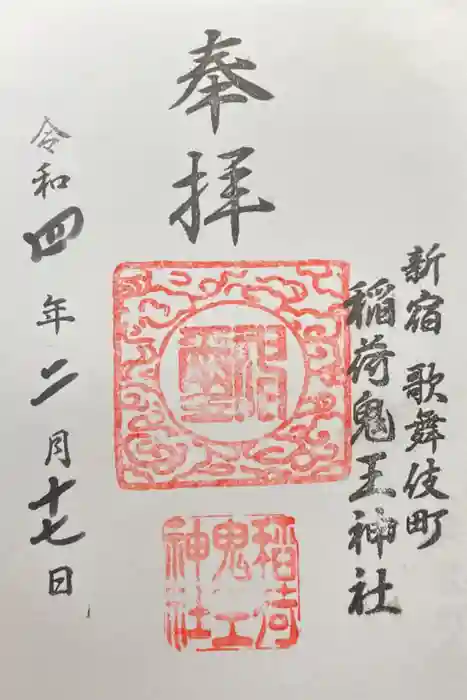 奉拝
新宿 歌舞伎町
稲荷鬼王神社
稲荷
鬼王
神社
令和四年二月十七日